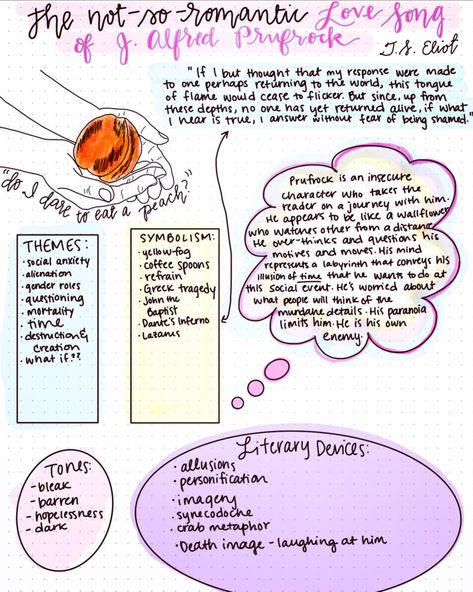 The not-so-romantic Love Song
of J. Alfred Prufrock
T.S. Eliot
"If I but thought that my response were made
to one perhaps returning to the world, this tongue
of flame would cease to flicker. But since, up from
these depths, no one has yet returned alive, if what
I hear is true, I answer without fear of being shamed."
"do I dare to eat a peach?"
Prufrock is an insecure
character who takes the
reader on a journey with him.
He appears to be like a wallflower
who watches other from a distance.
He over-thinks and questions his
motives and moves. His mind
represents a labyrinth that conveys his
illusion of time that he wants to do at
this social event. He's worried about
what people will think of the
mundane details. His paranoia
limits him. He is his own
enemy.
THEMES:
• social anxiety
• alienation
• gender roles
• questioning
• mortality
• time
• destruction &
creation
• what if??
SYMBOLISM:
• yellow-fog
• coffee spoons
• refrain
• Greek tragedy
• John the
Baptist
• Dante's Inferno
• Lazarus
Tones:
- bleak
- barren
- hopelessness
- dark
Literary Devices:
• allusions
• personification
• imagery
• synecdoche
• crab metaphor
• Death image - laughing at him